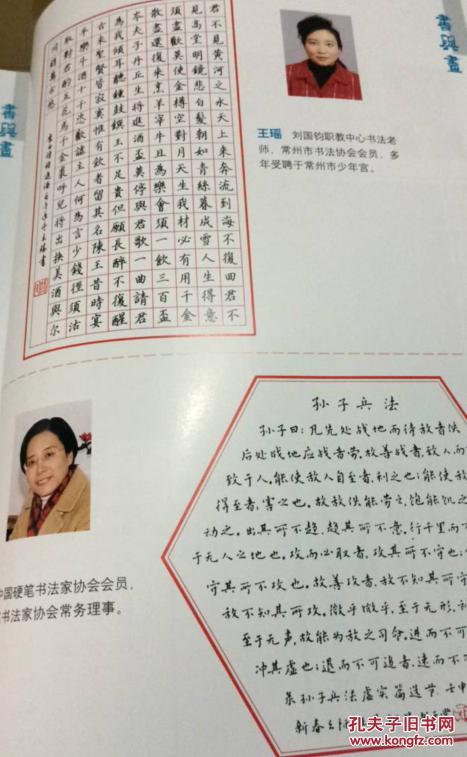 書與畫
君不見黄河之水天上来奔流到海不復回君不
見高堂明鏡悲白髮朝如青絲暮成雪人生得意
須盡歡莫使金樽空對月天生我材必有用千金
散盡還復來烹羊宰牛且為樂會須一飲三百盃
岑夫子丹丘生將進酒盃莫停與君歌一曲請君
為我傾耳聽鐘鼓饌玉不足貴但願長醉不復醒
古來聖賢皆寂寞惟有飲者留其名陳王昔時宴
平樂斗酒十千恣歡謔主人何為言少錢徑須沽
取對君酌五花馬千金裘呼兒将出换美酒與尔
同銷萬古愁
王瑶 刘国钧职教中心书法老
师、常州市书法协会会员，多
年受聘于常州市少年宫。
孙子兵法
孙子曰：凡先处战地而待敌者佚，
后处战地应战者劳，故善战者，致人而
致于人。能使敌人自至者，利之也；能使敌
得至者，害之也。故敌佚能劳之，饱能饥之，
动之。出其所不趋，趋其所不意。行千里而
于无人之地也。攻而必取者，攻其所不守也；
守其所不攻也。故善攻者，敌不知其所守
敌不知其所攻。微乎微乎，至于无形，
至于无声，故能为敌之司命。进而不可
冲其虚也；退而不可追者，速而不
录孙子兵法虚实篇选节 壬申
新春
中国硬笔书法家协会会员，
书法家协会常务理事。
書與畫
孔夫子旧书网
www.kongfz.com